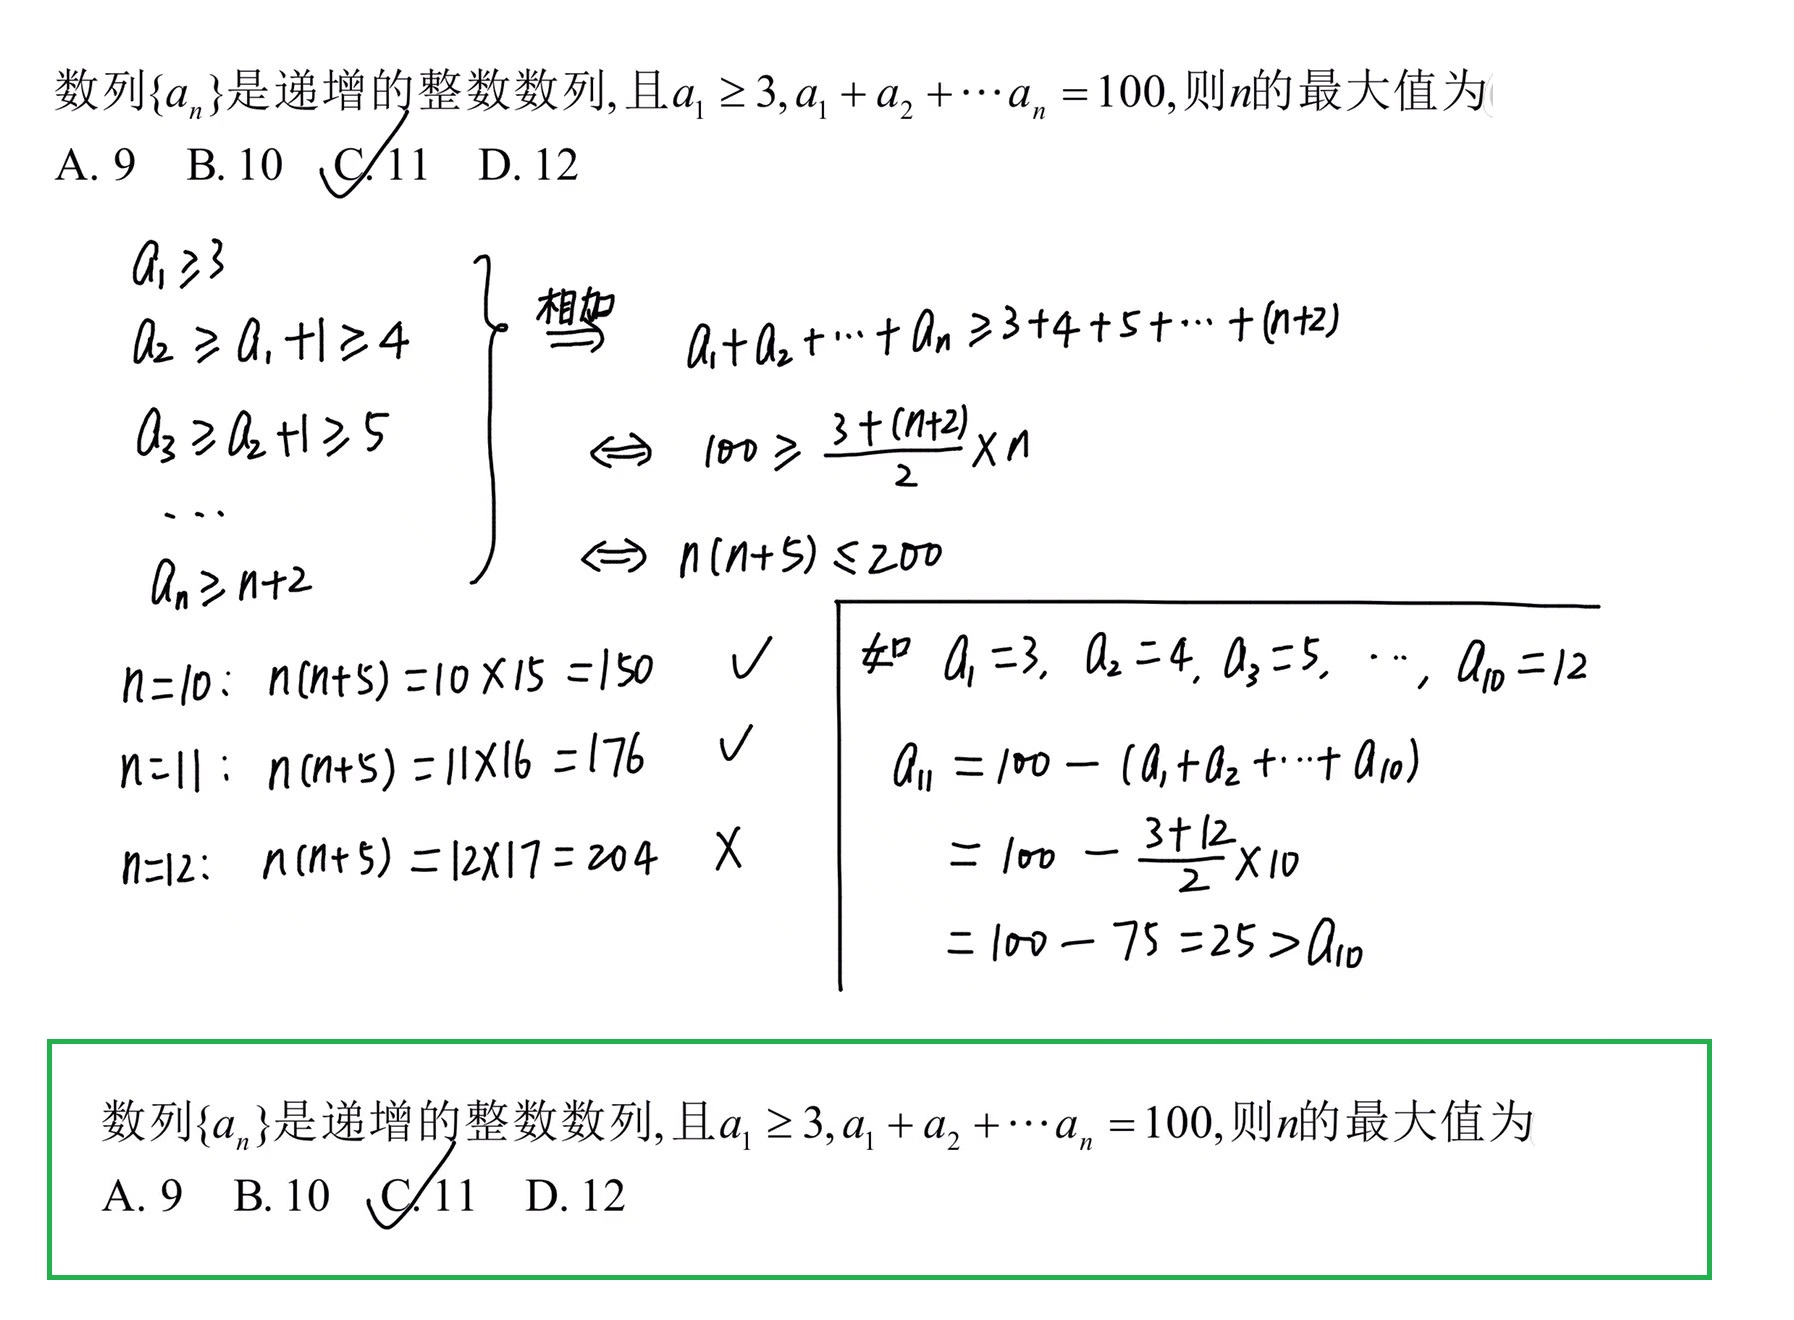 数列{aₙ}是递增的整数数列,且a₁ ≥ 3, a₁ + a₂ + ⋯aₙ = 100,则n的最大值为(
A. 9  B. 10  C. 11  D. 12
a₁ ≥ 3
a₂ ≥ a₁ + 1 ≥ 4
a₃ ≥ a₂ + 1 ≥ 5
...
aₙ ≥ n+2
相加 ⇒ a₁ + a₂ + ⋯ + aₙ ≥ 3 + 4 + 5 + ⋯ + (n+2)
⇔ 100 ≥ (3 + (n+2))/2 × n
⇔ n(n+5) ≤ 200
n=10: n(n+5) = 10×15 = 150 ✓
n=11: n(n+5) = 11×16 = 176 ✓
n=12: n(n+5) = 12×17 = 204 ×
如 a₁ = 3, a₂ = 4, a₃ = 5, ⋯, a₁₀ = 12
a₁₁ = 100 − (a₁ + a₂ + ⋯ + a₁₀)
= 100 − (3+12)/2 × 10
= 100 − 75 = 25 > a₁₀
数列{aₙ}是递增的整数数列,且a₁ ≥ 3, a₁ + a₂ + ⋯aₙ = 100,则n的最大值为
A. 9  B. 10  C. 11  D. 12